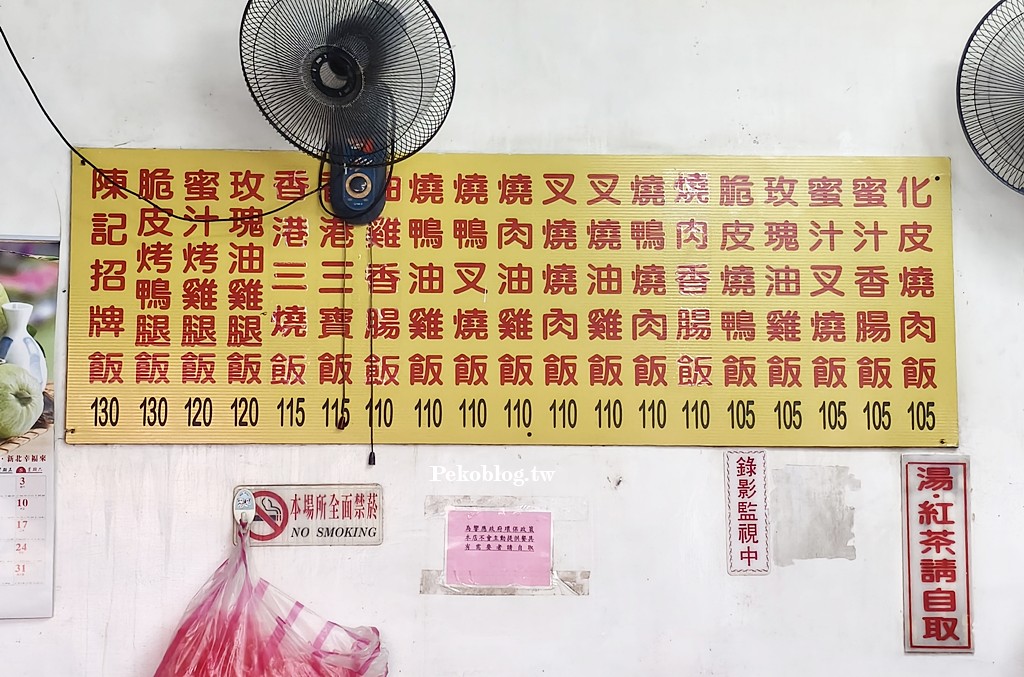 陳記招牌飯 130
脆皮烤鴨腿飯 130
蜜汁烤雞腿飯 120
玫瑰油雞腿飯 120
香港三燒飯 115
港三寶飯 115
油雞香腸飯 110
燒鴨油雞飯 110
燒鴨叉燒飯 110
燒肉油雞飯 110
叉燒燒肉飯 110
叉燒油雞飯 110
燒鴨燒肉飯 110
燒肉香腸飯 110
脆皮燒鴨飯 105
玫瑰油雞飯 105
蜜汁叉燒飯 105
蜜汁香腸飯 105
化皮燒肉飯 105
Pekoblog.tw
新北幸福來
3
10
17
24
31
本場所全面禁菸
NO SMOKING
為響應政府環保政策
本店不會主動提供餐具
有需要者請自取
錄影監視中
湯·紅茶請自取